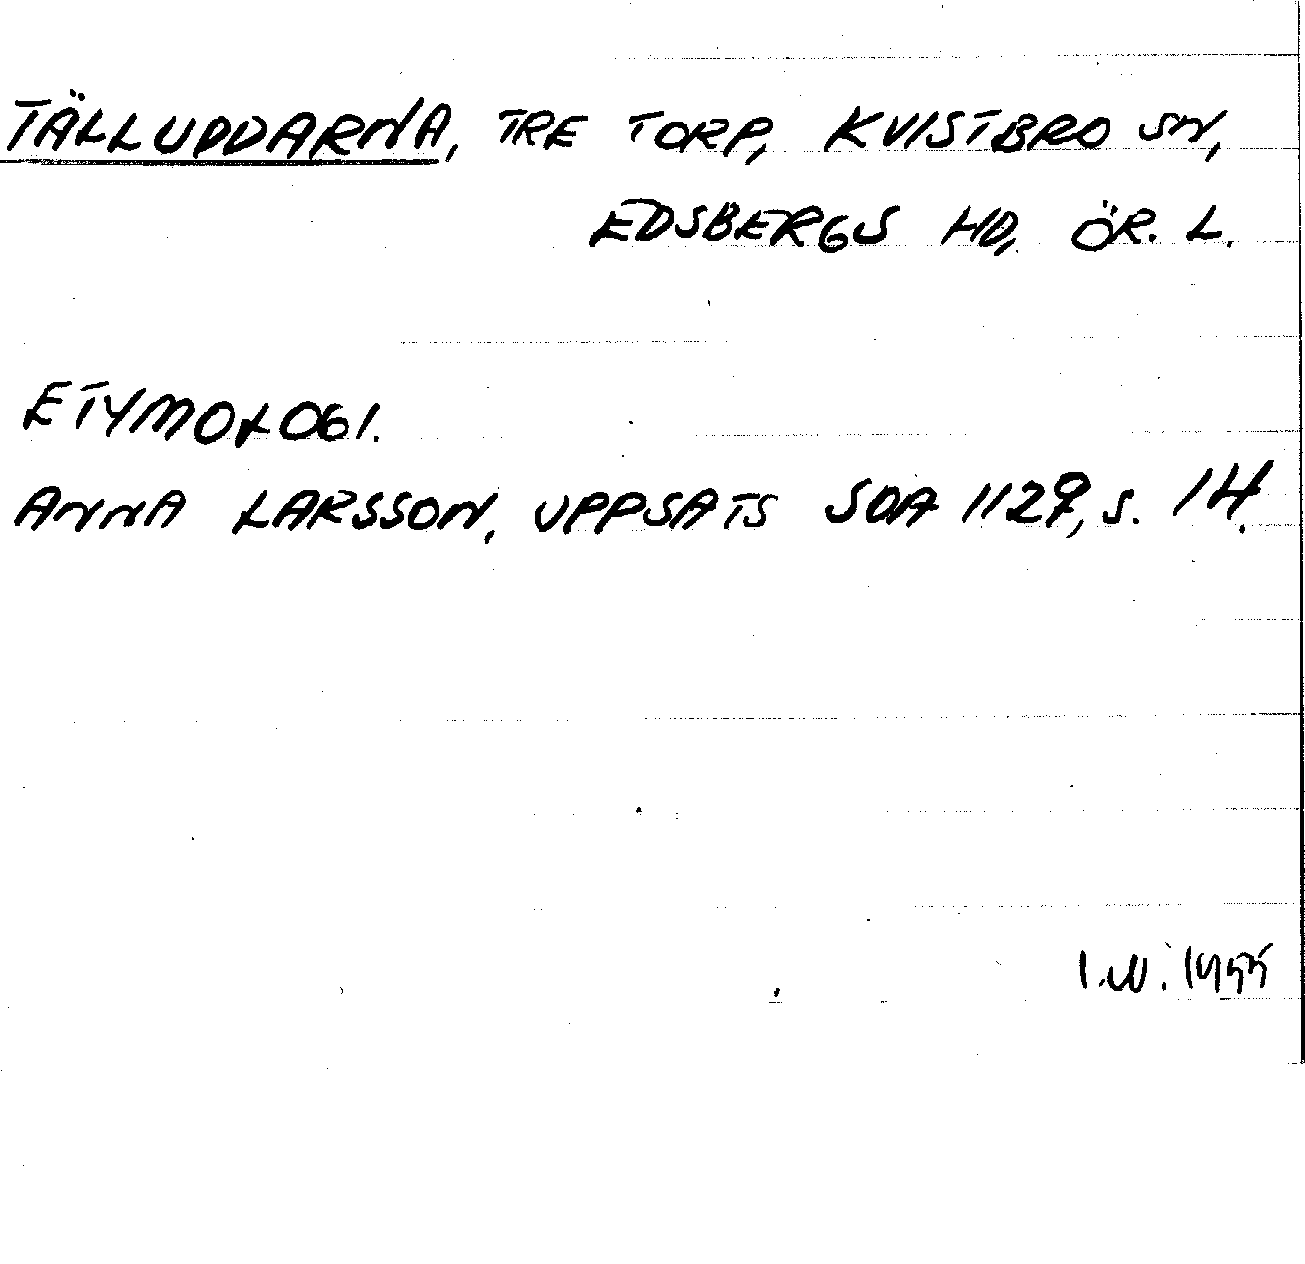 TÄLLUDDARNA, TRE TORP, KVISTBRO SN,
EDSBERGS HD, ÖR. L.
ETYMOLOGI.
ANNA LARSSON, UPPSATS SOA 1129, S. 14.
I.W. 1955